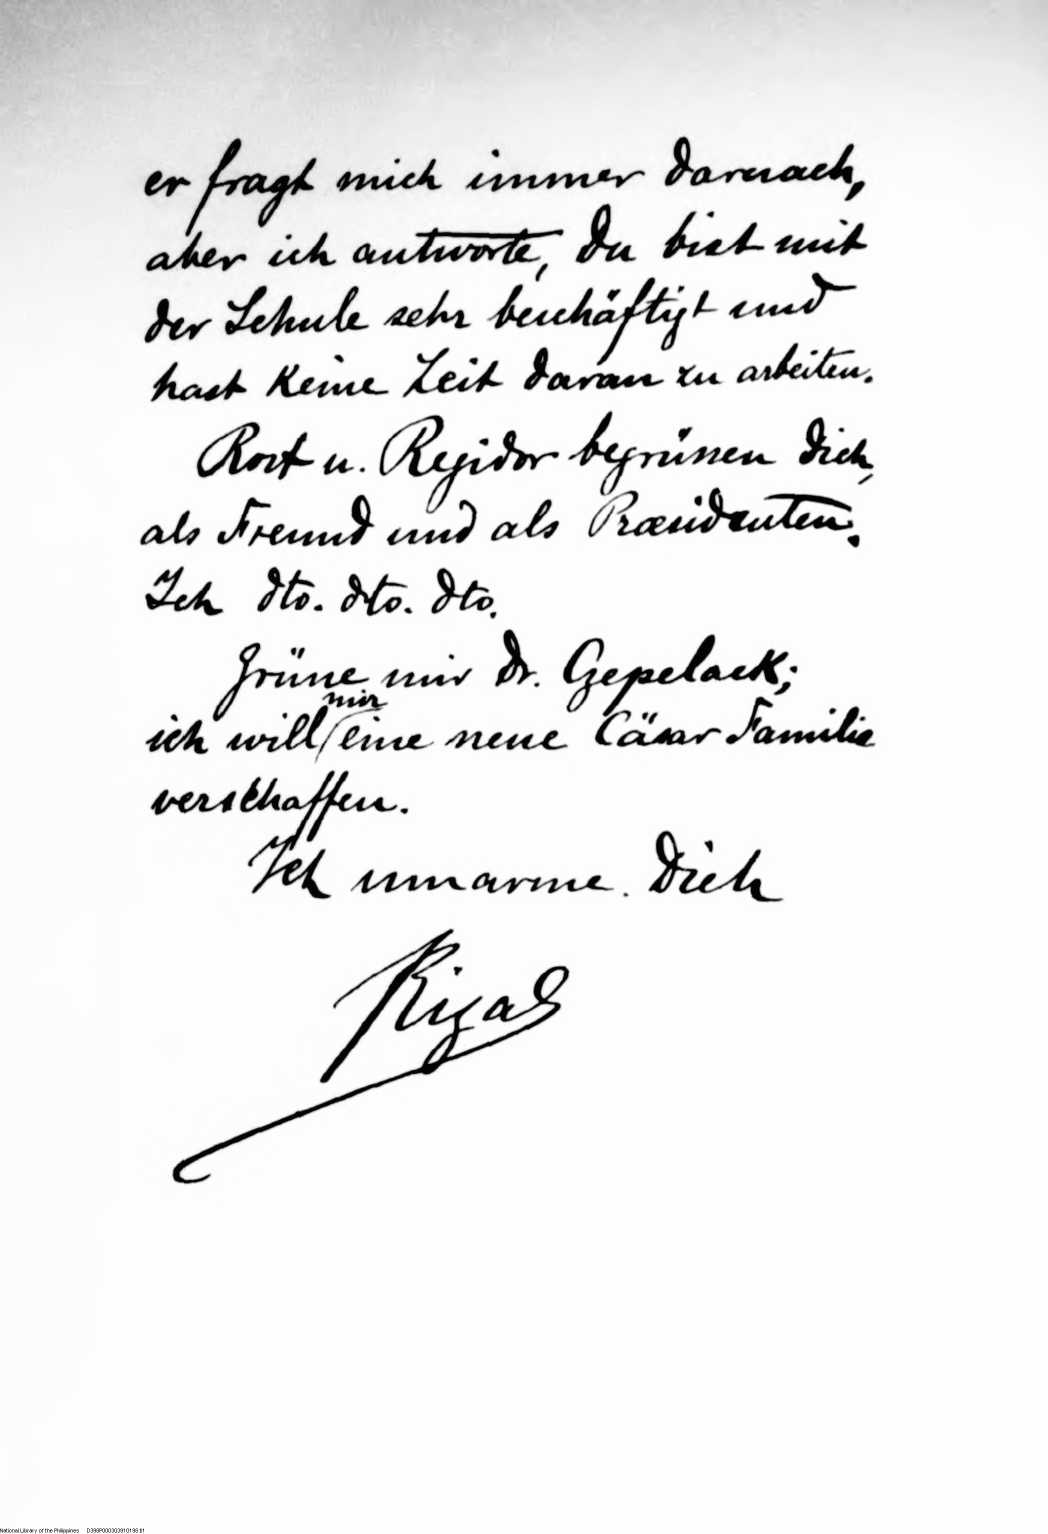 er fragt mich immer darnach,
aber ich antworte, Du bist mit
der Schule sehr beschäftigt und
hast keine Zeit daran zu arbeiten.
Rost u. Regidor begrüssen Dich,
als Freund und als Præsidenten.
Ich dto. dto. dto.
Grüsse mir Dr. Czepelack;
mir
ich will eine neue Cäsar Familie
verschaffen.
Ich umarme Dich
Rizal
National Library of the Philippines